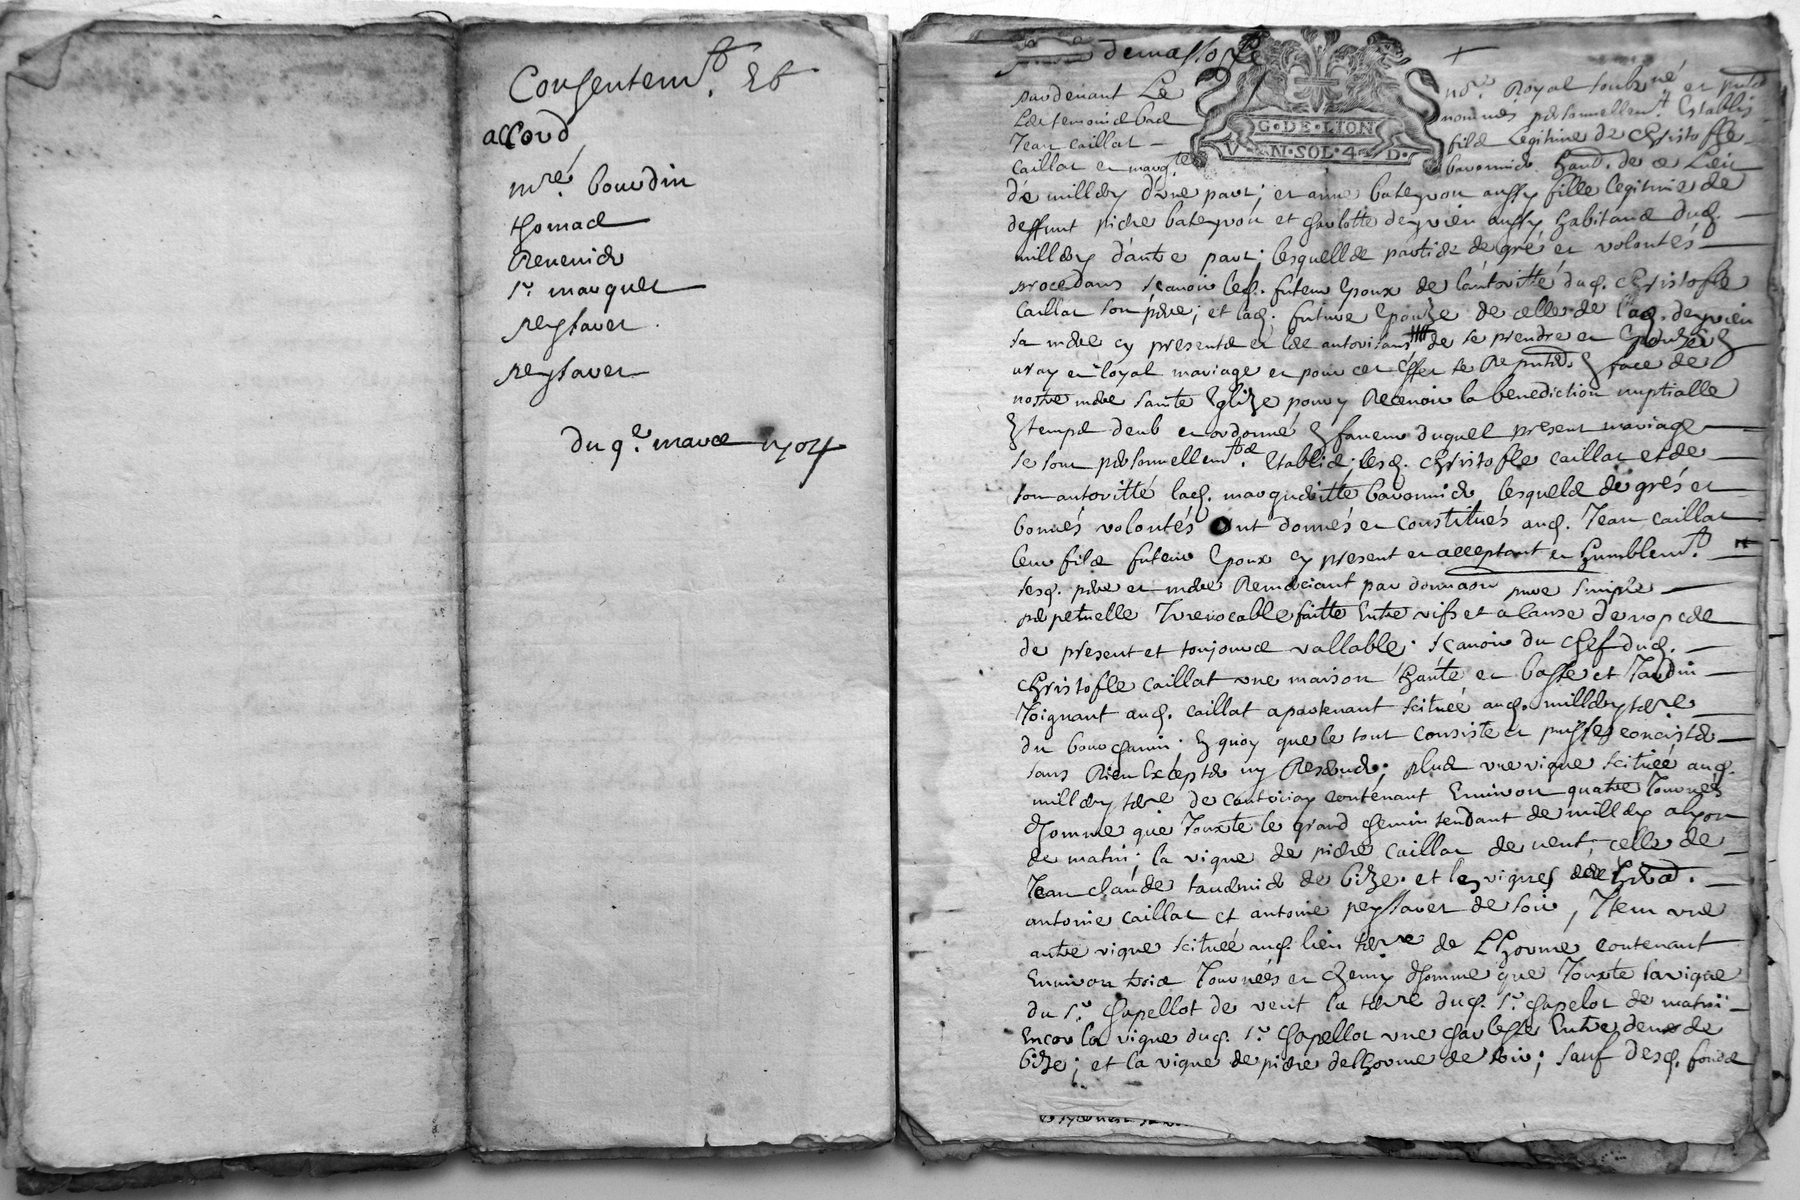 Consentem.t Et
accord
mre bourdin
thomas
Reuenide
sr. marquet
reystaver
reystaver
du 9e. mars 1704
demasso
G·DE·LION
V N·SOL·4·D·
pardevant Le nore. Royal soubzné et
Les temoins bas nommés personnellem.t Establis
Jean caillat fils Legitime de christofle
caillat et margte baronnide habt. de ce Lieu
de millery d'une part; et anne bateyron aussy fille legitime de
deffunt pierre bateyron et charlotte deyrieu aussy habitans dud.
millery d'autre part; lesquelles parties de gré et volontés
procedans sçauoir led. futeur Epoux de l'autoritté dud. christofle
caillat son pere; et lad. future Epouze de celle de lad. deyrieu
sa mere cy presents et les autorisans de se prendre en
vray et loyal mariage et pour cet Effet se face de
nostre mere sainte Eglize pour y Receuoir la benediction nuptialle
E temps deub et ordonné E faueur duquel present mariage
se sont personnellem.t Etablis lesd. christofle caillat et de
son autoritté lad. margueritte baronnide, lesquels de grés et
bonnes volontés ont donnés et constitués aud. Jean caillat
leur fils futeur Epoux cy present et acceptant et humblem.t
sesd. pere et mere Remerciant par donnaon pure simple
perpetuelle Irreuocable faitte Entre vifs et a cause de nopces
de present et toujours vallable. sçauoir du chef dud.
christofle caillat vne maison haute et basse et Jardin
Joignant aud. caillat apartenant scituée aud. millery terre
du bourchanin; E quoy que le tout consiste et puisse concister
sans Rien Excepter ny Reserver; plus vne vigne scituée aud.
millery terre de contenant Enuiron quatre Journées
d'homme que Jouxte le grand chemin tendant de millery a lyon
de matin; la vigne de pierre caillat de vent; celle de
Jean claude de bize. et les vignes des
antoine caillat et antoine reystaver de soir, Item vne
autre vigne scituée aud. lieu terre de Lhorme contenant
Enuiron trois Journées et demy d'homme que Jouxte la vigne
du sr. Chapellot de vent la terre dud. sr. chapelot de matin
Encor la vigne dud. sr. Chapellot vne Entre deux de
bize; et la vigne de pierre delhorme de soir; sauf desd. fonds